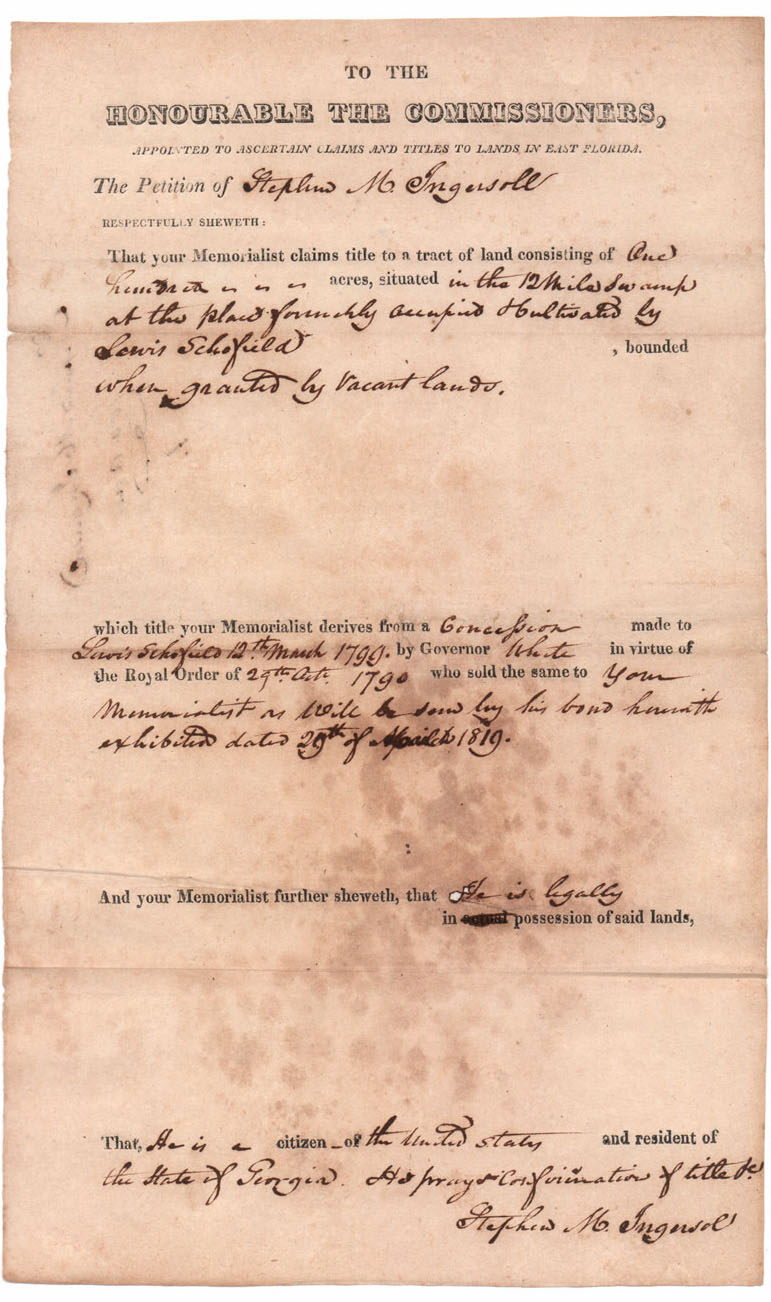 TO THE
HONOURABLE THE COMMISSIONERS,
APPOINTED TO ASCERTAIN CLAIMS AND TITLES TO LANDS IN EAST FLORIDA.
The Petition of Stephen M. Ingersoll
RESPECTFULLY SHEWETH:
That your Memorialist claims title to a tract of land consisting of One
hundred acres, situated in the 12 Mile Swamp
at the place formerly occupied & cultivated by
Lewis Schofield , bounded
when granted by Vacant lands.
which title your Memorialist derives from a Concession made to
Lewis Schofield 12th March 1799. by Governor White in virtue of
the Royal Order of 29th Oct. 1790 who sold the same to Your
Memorialist as Will be seen by his bond herewith
exhibited dated 29th of 1819.
And your Memorialist further sheweth, that He is legally
in actual possession of said lands,
That, He is a citizen of the United states and resident of
the State of Georgia. He prays Confirmation of title &c
Stephen M. Ingersol